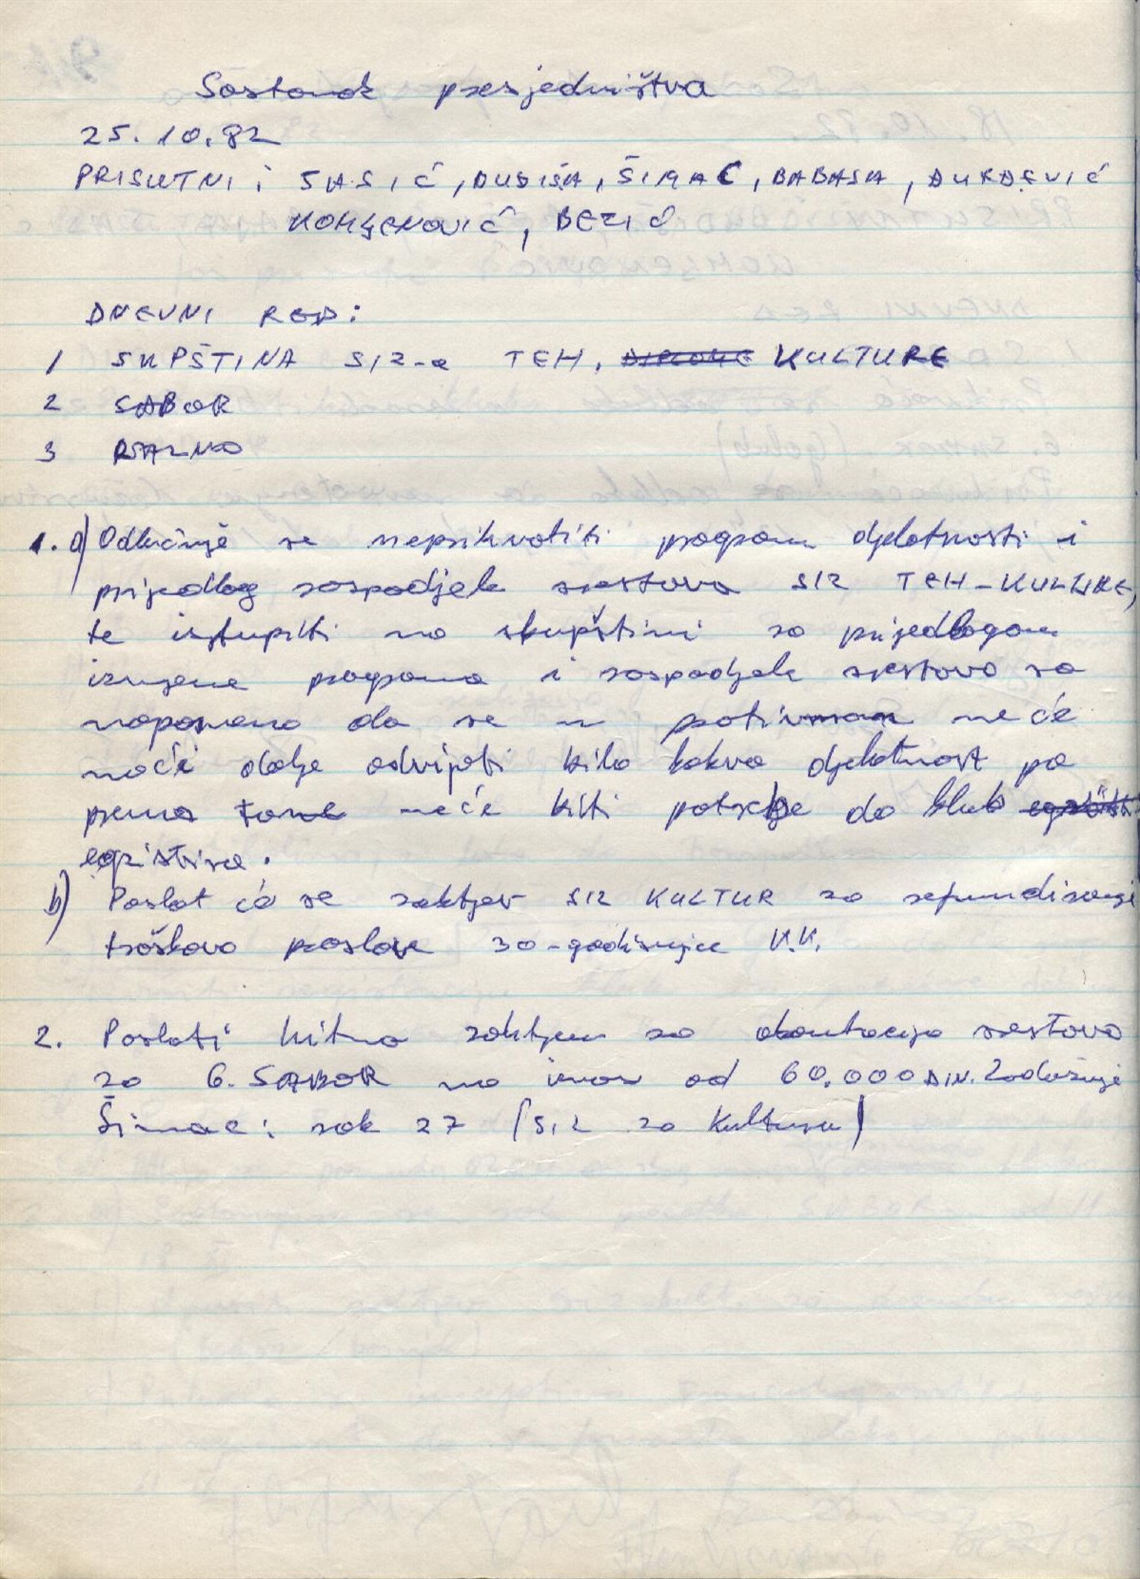 Sastanak presjedništva
25.10.82
PRISUTNI: SASIĆ, DUDIŠA, ŠIMAC, BABASA, ĐURĐEVIĆ
KOMLJENOVIĆ, BEZIĆ
DNEVNI RED:
1 SKPŠTINA SIZ-a TEH. KULTURE
2 SABOR
3 RAZNO
1. a) Odlučuje se neprihvatiti program djelatnosti i
prijedlog raspodjele sredstava SIZ TEH-KULTURE,
te istupiti na skupštini sa prijedlogom
izmjene programa i raspodjele sredstava sa
napomeno da se u neće
moći dalje odvijati bilo kakva djelatnost pa
prema tome neće biti potrebe da klub
egzistira.
b) Poslat će se zahtjev SIZ KULTUR za refundiranje
troškova proslave 30-godišnjice K.K.
2. Poslati hitno zahtjev za sredstava
za 6. SABOR na iznos od 60.000 DIN. Zadužuje
Šimac: rok 27 (SIZ za kulturu)